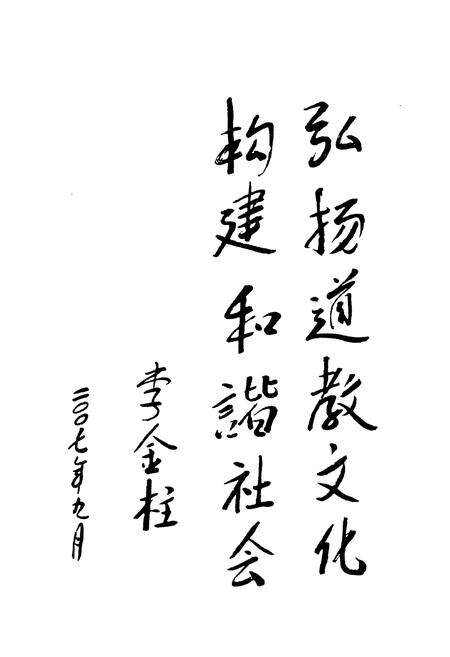 弘扬道教文化
构建和諧社会
李金柱
二〇〇七年九月